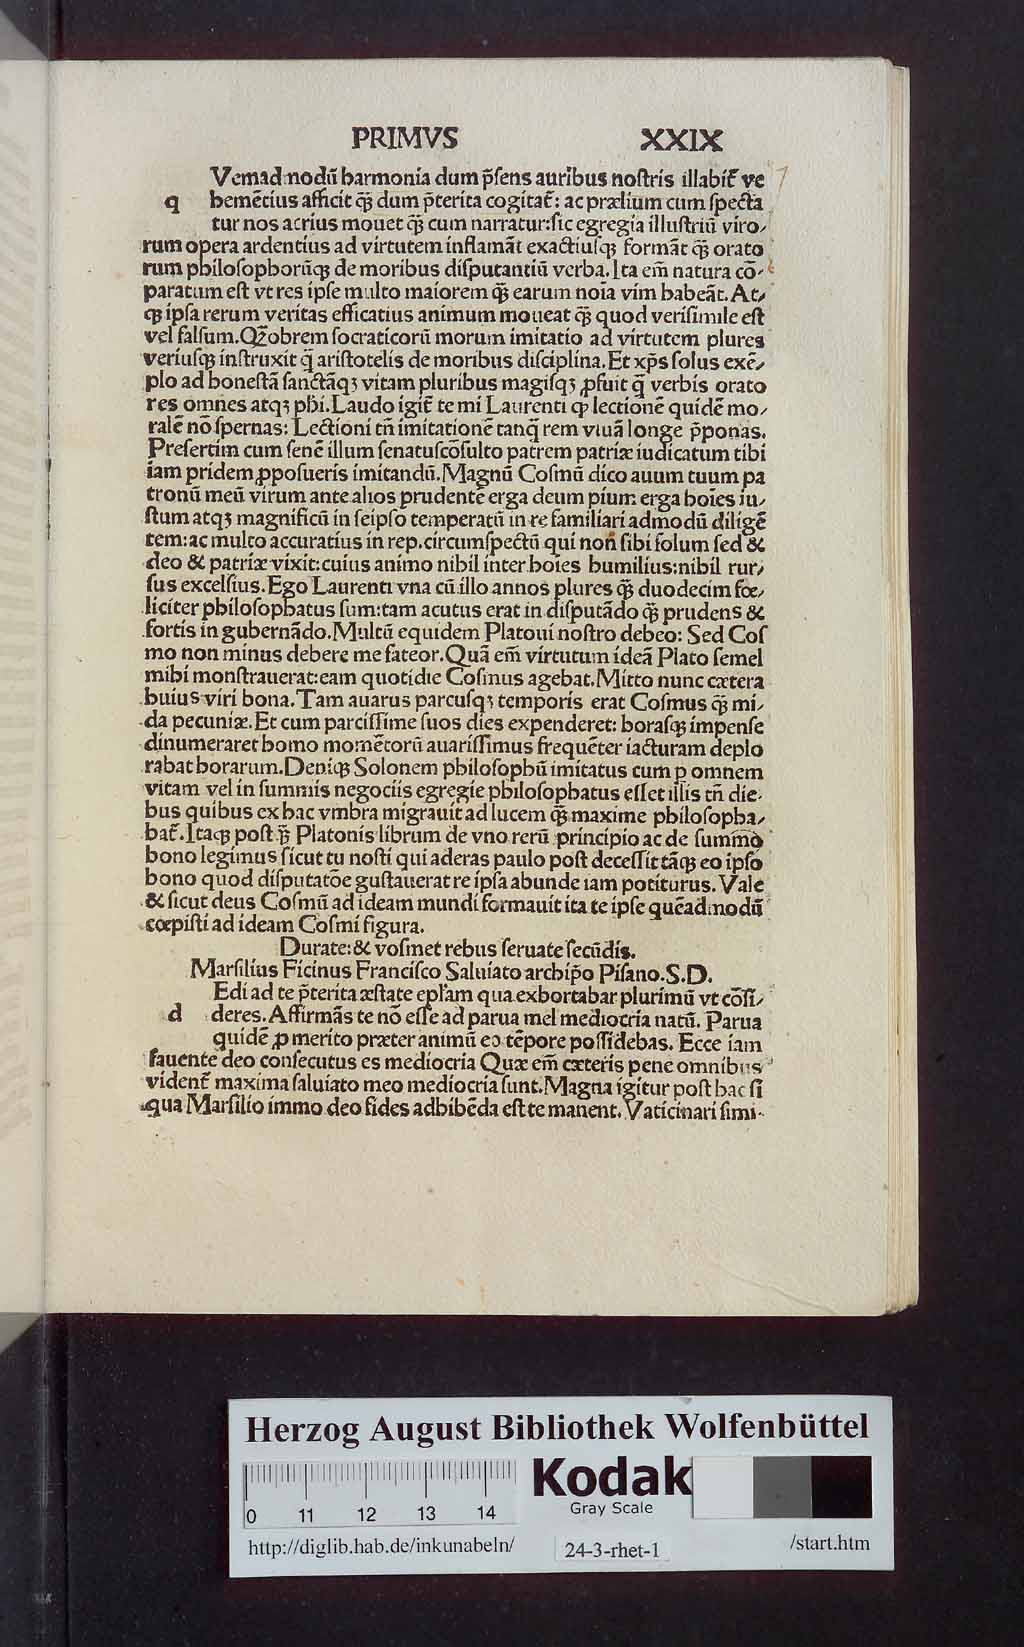 PRIMVS XXIX
Vemadmodū harmonia dum p̄sens auribus nostris illabit̄ ve
q hemētius afficit q̄ȝ dum p̄terita cogitat̄: ac prælium cum specta
tur nos acrius mouet q̄ȝ cum narratur:sic egregia illustriū viro/
rum opera ardentius ad virtutem inflamāt exactiusqȝ formāt q̄ȝ orato
rum philosophorūqȝ de moribus disputantiū verba. Ita em̄ natura cō/
paratum est vt res ipse multo maiorem q̄ȝ earum noīa vim habeāt. At/
qȝ ipsa rerum veritas efficatius animum moueat q̄ȝ quod verisimile est
vel falsum. Qȝobrem socraticorū morum imitatio ad virtutem plures
veriusqȝ instruxit q̄ aristotelis de moribus disciplina. Et xp̄s solus exē/
plo ad honestā sanctāqȝ vitam pluribus magisqȝ ꝓfuit q̄ verbis orato
res omnes atqȝ phi. Laudo igit̄ te mi Laurenti qꝫ lectionē quidē mo/
ralē nō spernas: Lectioni tn̄ imitationē tanq̄ rem viuā longe p̄ponas.
Presertim cum senē illum senatuscōsulto patrem patriæ iudicatum tibi
iam pridem ꝓposueris imitandū. Magnū Cosmū dico auum tuum pa
tronū meū virum ante alios prudentē erga deum pium erga hoīes iu/
stum atqȝ magnificū in seipso temperatū in re familiari admodū diligē
tem: ac multo accuratius in rep. circumspectū qui non sibi solum sed &
deo & patriæ vixit: cuius animo nihil inter hoīes humilius: nihil rur/
sus excelsius. Ego Laurenti vna cū illo annos plures q̄ȝ duodecim fœ/
liciter philosophatus sum: tam acutus erat in disputādo q̄ȝ prudens &
fortis in gubernādo. Multū equidem Platoui nostro debeo: Sed Cos
mo non minus debere me fateor. Quā em̄ virtutum ideā Plato semel
mihi monstrauerat: eam quotidie Cosmus agebat. Mitto nunc cætera
huius viri bona. Tam auarus parcusqȝ temporis erat Cosmus q̄ȝ mi/
da pecuniæ. Et cum parcissime suos dies expenderet: horasqȝ impense
dinumeraret homo momētorū auarissimus frequēter iacturam deplo
rabat horarum. Deniqȝ Solonem philosophū imitatus cum ꝑ omnem
vitam vel in summis negociis egregie philosophatus esset illis tn̄ die
bus quibus ex hac vmbra migrauit ad lucem q̄ȝ maxime philosopha/
bat̄. Itaqȝ post q̄ȝ Platonis librum de vno rerū principio ac de summo
bono legimus sicut tu nosti qui aderas paulo post decessit tāqȝ eo ipso
bono quod disputatōe gustauerat re ipsa abunde iam potiturus. Vale
& sicut deus Cosmū ad ideam mundi formauit ita te ipse quēadmodū
cœpisti ad ideam Cosmi figura.
Durate: & vosmet rebus seruate secūdis.
Marsilius Ficinus Francisco Saluiato archip̄o Pisano. S. D.
Edi ad te p̄terita æstate epl̄am qua exhortabar plurimū vt cōsi/
d deres. Affirmās te nō esse ad parua mel mediocria natū. Parua
quidē ꝓ merito præter animū eo tēpore possidebas. Ecce iam
fauente deo consecutus es mediocria Quæ em̄ cæteris pene omnibus
vident̄ maxima saluiato meo mediocria sunt. Magna igitur post hac si
qua Marsilio immo deo fides adhibēda est te manent. Vaticinari simi
Herzog August Bibliothek Wolfenbüttel
0 11 12 13 14
Kodak
Gray Scale
http://diglib.hab.de/inkunabeln/ 24-3-rhet-1 /start.htm